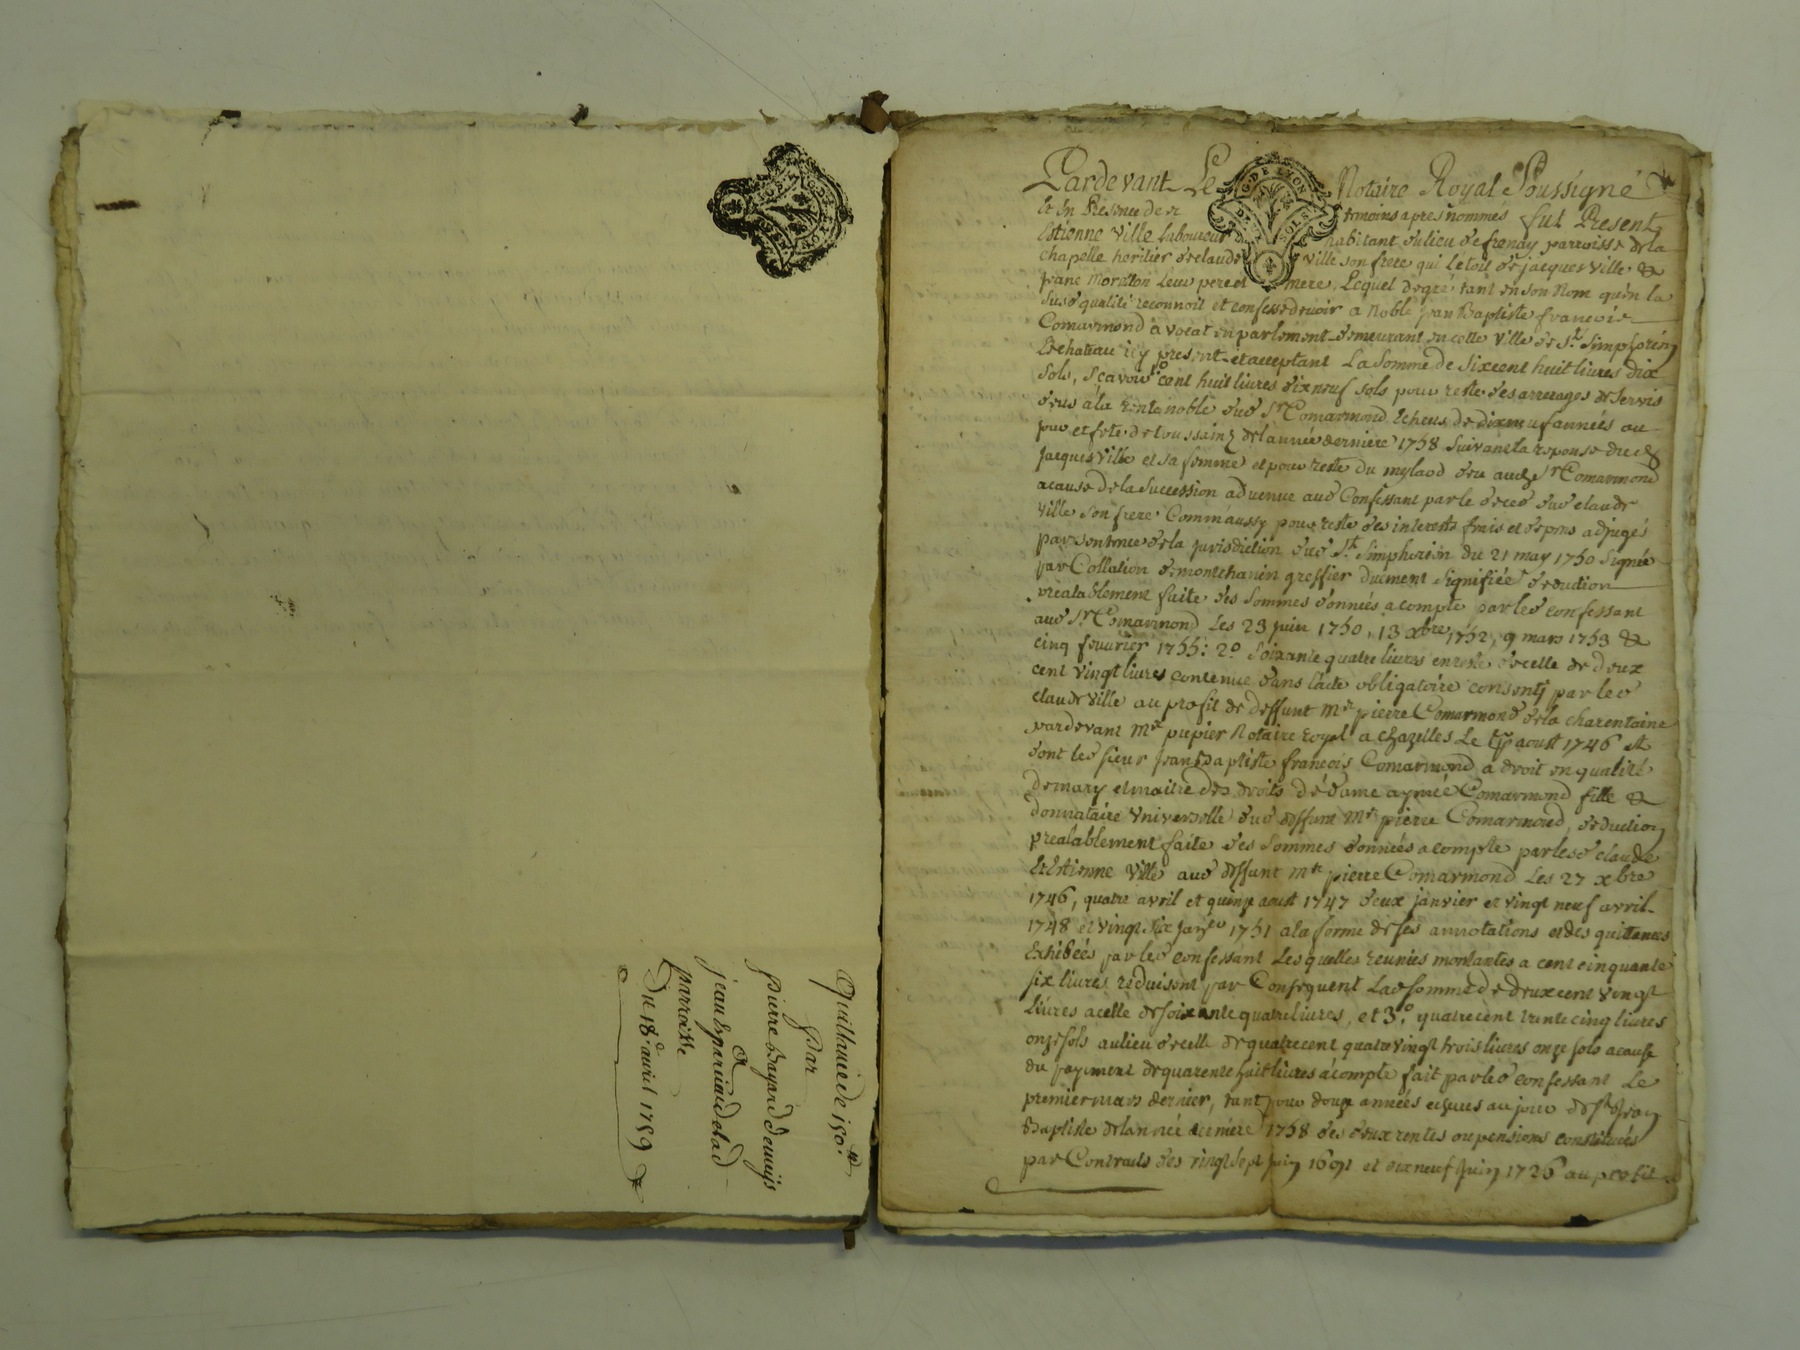 Quittance de 150.ᵗᵗ
Par
pierre Bayard
jean
parroisse
Du 18.ᵉ avril 1759
G. DE LYON
DEUX SOLS
Pardevant Le Notaire Royal Soussigné
Et En Presence des temoins apres nommés fut Present
Estienne Ville Laboureur habitant du lieu de frenay parroisse de la
chapelle heritier de claude ville son frere qui letoit de jacques ville &
franc Morillon leur pere et mere, Lequel degré tant en son Nom quen la
susd qualité reconnoit et confesse devoir a Noble jean Baptiste francois
Comarmond avocat en parlement demeurant en cette ville de St. Simphorien
Le chateau icy present et acceptant La Somme de Six cent huit livres dix
sols, Sçavoir 1º cent huit livres dix neuf sols pour reste des arrerages de servis
deus à la rente noble dud Sr Comarmond Echeus de dix neuf années au
jour et fete de toussaint de lannée derniere 1758 Suivant la reponse dud
Jacques Ville et sa femme et pour reste du mylaod deu audt Sr Comarmond
a cause de la Succession advenue aud Confessant par le deces dud claude
Ville son frere Comm'aussy pour reste des interests frais et depens adjugés
par sentence de la jurisdiction dud St. Simphorien du 21 may 1750 Signée
par Collation de montchanin greffier duement signifiée deduction
prealablement faite des sommes données a compte par led confessant
aud Sr Comarmond Les 23 juin 1750, 13 xbre 1752, 9 mars 1753 &
cinq fevrier 1755: 2º Soixante quatre livres en reste de celle de deux
cent vingt livres contenue dans lacte obligatoire consenty par led
claude Ville au profit de deffunt Mr pierre Comarmond de la charentaine
pardevant Me pupier Notaire royal a chazelles Le aoust 1746 et
dont led sieur Jean Baptiste francois Comarmond a droit en qualité
de mary et maitre des droits de dame aymée Comarmond fille &
donnataire Universelle dud deffunt Mr pierre Comarmond, deduction
prealablement faite des sommes données a compte par lesd claude
Et Estienne Ville aud deffunt Mr pierre Comarmond Les 27 xbre
1746, quatre avril et quinze aoust 1747 deux janvier et vingt neuf avril
1748 et vingt six janver 1751 a la forme de ses annotations et des quittances
Exhibées par led confessant Les quelles reunies montantes a cent cinquante
six livres reduisent par Consequent Lad somme de deux cent vingt
livres a celle de soixante quatre livres, et 3.º quatre cent trente cinq livres
onze sols au lieu de celle de quatre cent quatre vingt trois livres onze sols a cause
du payement de quarente huit livres a compte fait par led confessant Le
premier mars dernier, tant pour douze années echues au jour de St Jean
Baptiste de lannée derniere 1758 des deux rentes ou pensions constituées
par Contracts des vingt sept juin 1691 et dix neuf Juin 1726 au profit